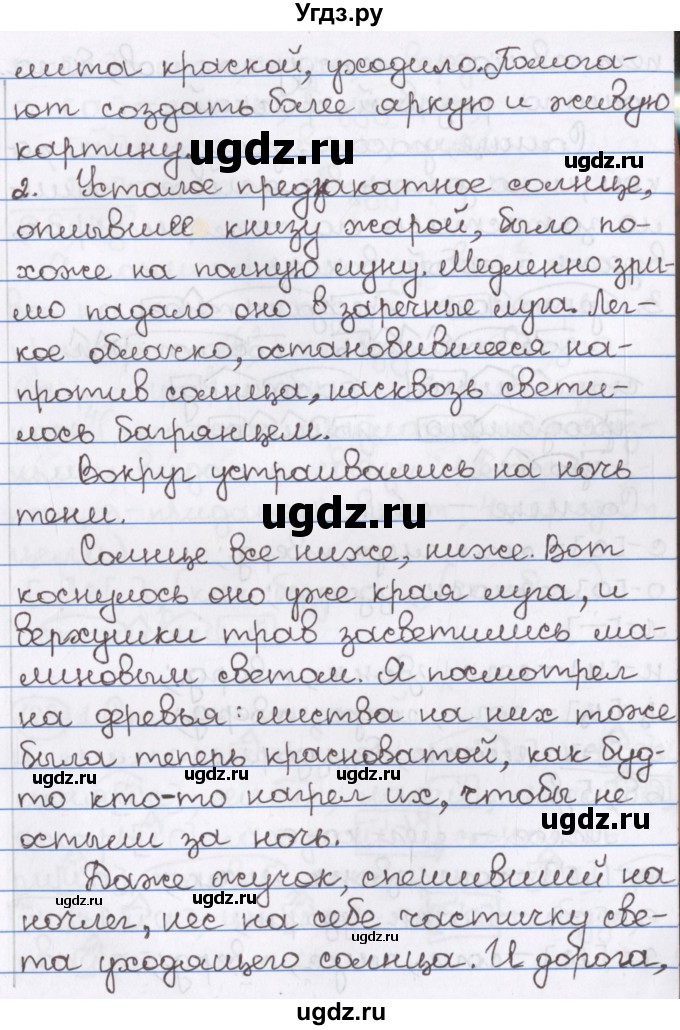 Угдз.ру
листа краской, уходило. Помога-
ют создать более яркую и живую
картину.
2. Усталое предзакатное солнце,
оплывшее книзу жарой, было по-
хоже на полную луну. Медленно зри-
мо падало оно в заречные луга. Лег-
кое облачко, остановившееся на-
против солнца, насквозь свети-
лось багрянцем.
Вокруг устраивались на ночь
тени.
Солнце все ниже, ниже. Вот
коснулось оно уже края луга, и
верхушки трав засветились ма-
линовым светом. Я посмотрел
на деревья: листва на них тоже
была теперь красноватой, как буд-
то кто-то нагрел их, чтобы не
остыли за ночь.
Даже жучок, спешивший на
ночлег, нес на себе частичку све-
та уходящего солнца. И дорога,
ugdz.ru
ugdz.ru
ugdz.ru
ugdz.ru
ugdz.ru
ugdz.ru
ugdz.ru
ugdz.ru
ugdz.ru